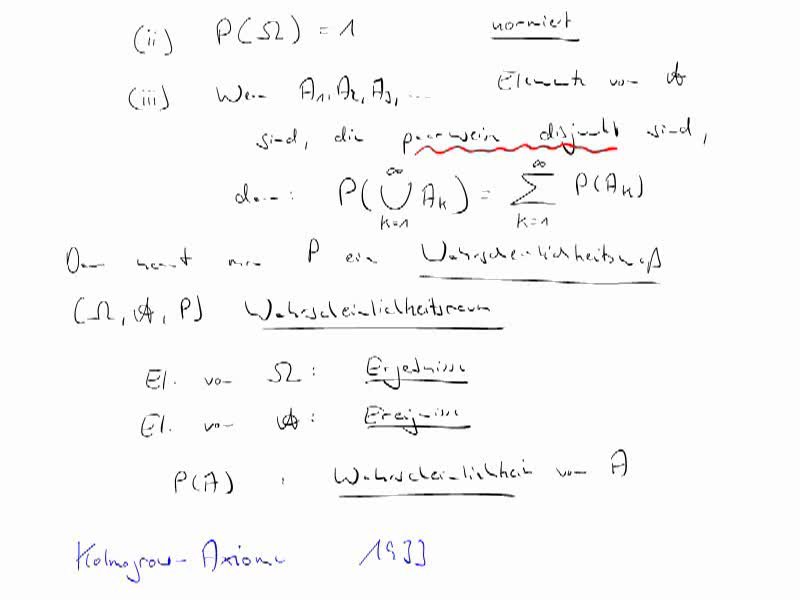 (ii) P(Ω) = 1 normiert
(iii) Wenn A₁, A₂, A₃, ... Elemente von 𝔸
sind, die paarweise disjunkt sind,
dann: P(⋃_{k=1}^{∞} A_k) = ∑_{k=1}^{∞} P(A_k)
Dann nennt man P ein Wahrscheinlichkeitsmaß
(Ω, 𝔸, P) Wahrscheinlichkeitsraum
El. von Ω: Ergebnisse
El. von 𝔸: Ereignisse
P(A) : Wahrscheinlichkeit von A
Kolmogrow-Axiome 1933